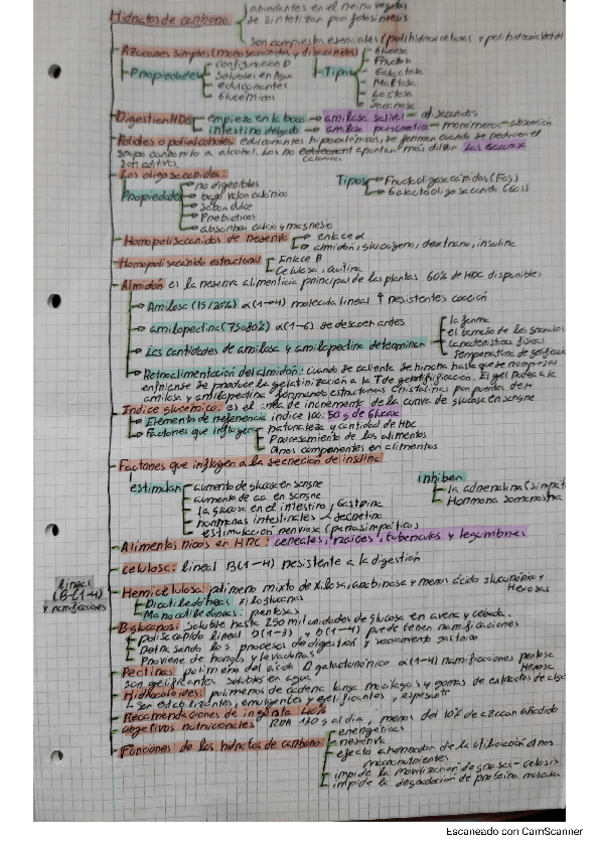 Hidratos de carbono:
abundantes en el reino vegetal
se sintetizan por fotosintesis
Son compuestos esenciales (polihidroxicetonas y polihidroxi
Azucares simples (monosacaridos y disacaridos)
Propiedades
configuracion D
solubles en Agua
edulcorantes
Glucemicos
Tipos
Glucosa
Fructosa
Galactosa
Maltosa
Lactosa
Sacarosa
Digestion HDC
empieza en la boca → amilasa salival → disacaridos
intestino delgado → amilasa pancreatica → monomeros → absorcion
Polioles o polialcoholes edulcorantes hipocaloricos, se forman cuando se reducen el
grupo carbonilo a alcohol. Los no aportan más dulzor.
son aditivos
Los oligosacaridos:
Propiedades
no digeribles
bajo valor calórico
Sabor dulce
Prebioticos
absorben calcio y magnesio
Tipos
Fructooligosacáridos (FOS)
Galactooligosacarido (GOS)
Homopolisacaridos de reserva
enlace α
almidón, glucógeno, dextrano, inulina
Homopolisacárido estructural
Enlace B
Celulosa, quitina
Almidón es la reserva alimenticia principal de las plantas 60% de HDC disponibles
Amilosa (15/20%) α(1→4) molecula lineal ↑ resistentes cocción
amilopectina (75@80%) α(1-6)
Las cantidades de amilosa y amilopectina determinan
la forma
el tamaño de los granulos
Características fisicas
Temperatura de
Retroalimentación del almidón: cuando se caliente se hincha hasta que se
enfriarse se produce la gelatinización a la T de El gel
amilosa y amilopectina formando estructuras cristalinas por puentes de H
Indice glucemico: es el area de incremento de la curva de glucosa en sangre
Elemento de referencia indice 100: 50 g de Glucosa
Factores que influyen
naturaleza y cantidad de HDC
Procesamiento de los alimentos
Otros componentes en alimentos
Factores que influyen a la secrecion de insulina
estimulan
aumento de glucosa en sangre
aumento de aa en sangre
la glucosa en el intestino, Gastrina
hormonas intestinales Secretina
estimulación nerviosa (parasimpático)
inhiben
la adrenalina (simpáti
Hormona somatosta
Alimentos ricos en HDC: cereales, raices, tuberculos y legumbres
celulosa: lineal B(1-4) resistente a la digestión
lineal
(B-(1-4)
y ramificaciones
Hemicelulosa: polimero mixto de xilosa, arabinosa y menos ácido glucuronico y
Hexosas
Dicotiledoneas: xiloglucanos
Monocotiledoneas: pentosas
B-glucanos: Soluble hasta 250 mil unidades de glucosa en avena y cebada.
polisacarido lineal B(1-3) y B(1-4) puede tener ramificaciones
retrasando los procesos de digestion y vaciamiento gastrico
Proviene de hongos y levaduras
Pectinas: polimero del ácido D galacturónico α(1-4) ramificaciones pentosa
Hexosa
Son gelificantes solubles en agua
Hidrocoloides: polimeros de cadena larga mucilagos y gomas de extractos de algas
Son estabilizantes, emulgentes y gelificantes, espesante
Recomendaciones de ingesta 40%
Objetivos nutricionales RDA 130 g al dia, menos del 10% de azucar añadido
Funciones de los hidratos de carbono
energéticas
reserva
efecto ahorrador de la utilización otros
macronutrientes
impide la movilización de grasas - cetosis
impide la degradación de proteina muscula
Escaneado con CamScanner